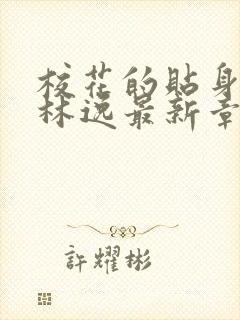 校花的貼身
林逸最新章
許耀彬